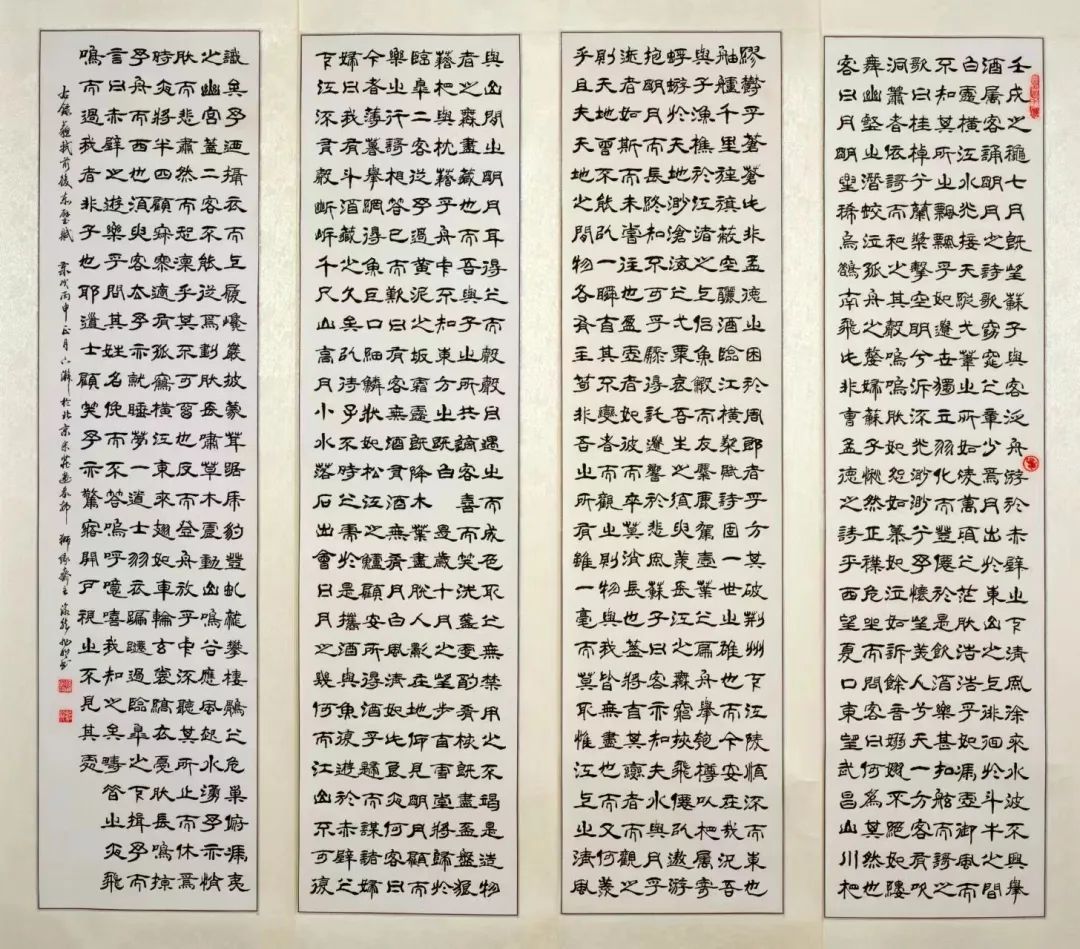 壬戌之穐七月既望蘇子與客泛舟游於赤壁之下清風徐來水波不興舉
酒屬客誦明月之詩歌窈窕之章少焉月出於東山之上徘徊於斗牛之間
白露橫江水光接天縱一葦之所如凌萬頃之茫然浩浩乎如馮虛御風而
不知其所止飄飄乎如遺世獨立羽化而登僊於是飲酒樂甚扣舷而歌之
歌曰桂棹兮蘭槳擊空明兮泝流光渺渺兮予懷望美人兮天一方客有吹
洞簫者依歌而和之其聲嗚嗚然如怨如慕如泣如訴餘音嫋嫋不絕如縷
舞幽壑之潛蛟泣孤舟之嫠婦蘇子愀然正襟危坐而問客曰何為其然也
客曰月明星稀烏鵲南飛此非曹孟德之詩乎西望夏口東望武昌山川相
繆鬱乎蒼蒼此非孟德之困於周郎者乎方其破荊州下江陵順流而東也
舳艫千里旌旗蔽空釃酒臨江橫槊賦詩固一世之雄也而今安在哉況吾
與子漁樵於江渚之上侶魚蝦而友麋鹿駕一葉之扁舟舉匏樽以相屬寄
蜉蝣於天地渺滄海之一粟哀吾生之須臾羨長江之無窮挾飛僊以遨游
抱明月而長終知不可乎驟得託遺響於悲風蘇子曰客亦知夫水與月乎
逝者如斯而未嘗往也盈虛者如彼而卒莫消長也蓋將自其變者而觀之
則天地曾不能以一瞬自其不變者而觀之則物與我皆無盡也而又何羨
乎且夫天地之間物各有主苟非吾之所有雖一毫而莫取惟江上之清風
與山間之明月耳得之而為聲目遇之而成色取之無禁用之不竭是造物
者之無盡藏也而吾與子之所共適客喜而笑洗盞更酌肴核既盡杯盤狼
藉相與枕藉乎舟中不知東方之既白 是歲十月之望步自雪堂將歸於
臨皋二客從予過黃泥之坂霜露既降木葉盡脫人影在地仰見明月顧而
樂之行歌相答已而歎曰有客無酒有酒無肴月白風清如此良夜何客曰
今者薄暮舉網得魚巨口細鱗狀如松江之鱸顧安所得酒乎歸而謀諸婦
婦曰我有斗酒藏之久矣以待子不時之需於是攜酒與魚復遊於赤壁之
下江流有聲斷岸千尺山高月小水落石出曾日月之幾何而江山不可復
識矣予迺攝衣而上履巉巖披蒙茸踞虎豹登虯龍攀棲鶻之危巢俯馮夷
之幽宮蓋二客不能從焉劃然長嘯草木震動山鳴谷應風起水湧予亦悄
然而悲肅然而恐凜乎其不可留也反而登舟放乎中流聽其所止而休焉
時夜將半四顧寂寥適有孤鶴橫江東來翅如車輪玄裳縞衣戛然長鳴掠
予舟而西也須臾客去予亦就睡夢一道士羽衣蹁躚過臨皋之下揖予而
言曰赤壁之遊樂乎問其姓名俛而不答嗚呼噫嘻我知之矣疇昔之夜飛
鳴而過我者非子也耶道士顧笑予亦驚寤開戶視之不見其處
右錄蘇軾前後赤壁賦 歲次丙申正月 於北京